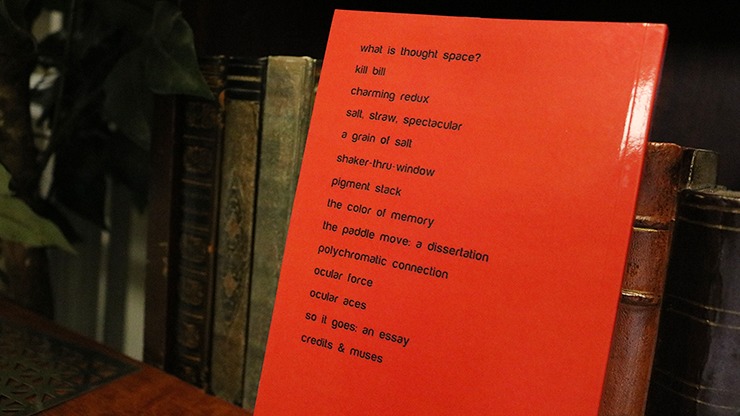 what is thought space?
kill bill
charming redux
salt, straw, spectacular
a grain of salt
shaker-thru-window
pigment stack
the color of memory
the paddle move: a dissertation
polychromatic connection
ocular force
ocular aces
so it goes: an essay
credits & muses